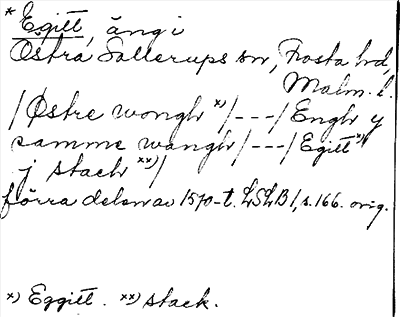 * Egitt, äng i
Östra Sallerups sn, Frosta hd,
Malm. l.
/Østre wongh *)/---/Engh y
samme wangh/---/Egitt *)
j stach **)/
förra delen av 1570-t. LSLB 1, s. 166. orig.
*) Eggitt. **) stack.